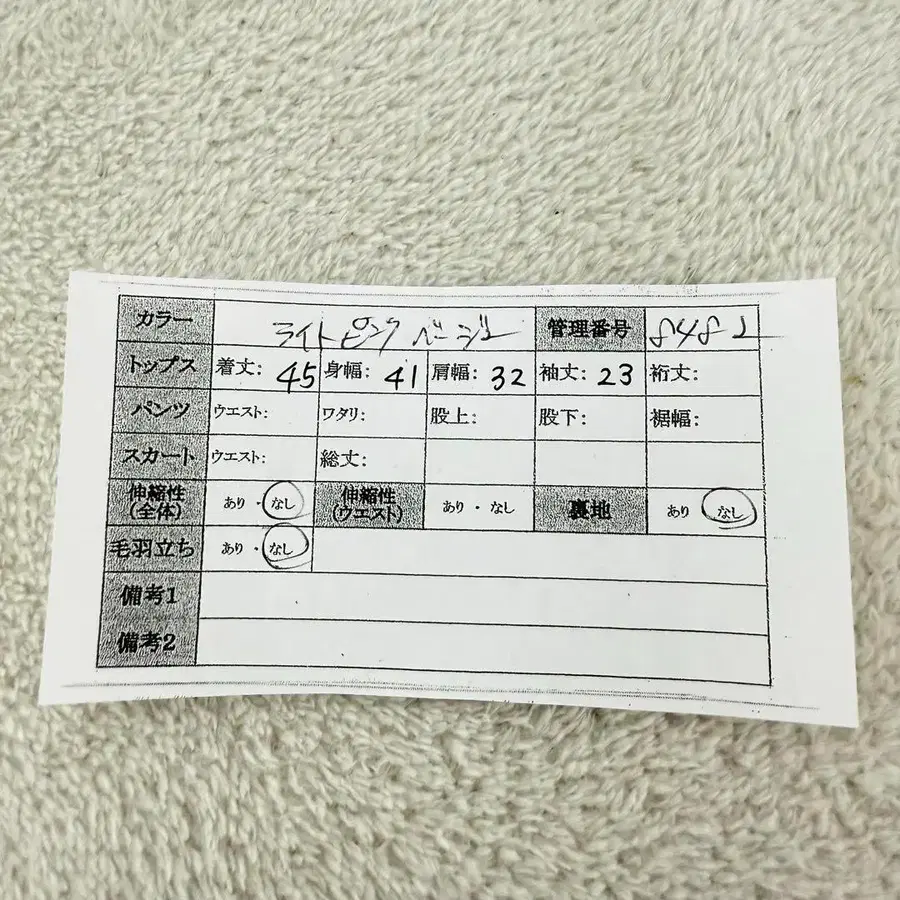 カラー ライトピンクベージュ 管理番号 8482
トップス 着丈: 45 身幅: 41 肩幅: 32 袖丈: 23 裄丈:
パンツ ウエスト: ワタリ: 股上: 股下: 裾幅:
スカート ウエスト: 総丈:
伸縮性(全体) あり ・ なし 伸縮性(ウエスト) あり ・ なし 裏地 あり なし
毛羽立ち あり ・ なし
備考1
備考2